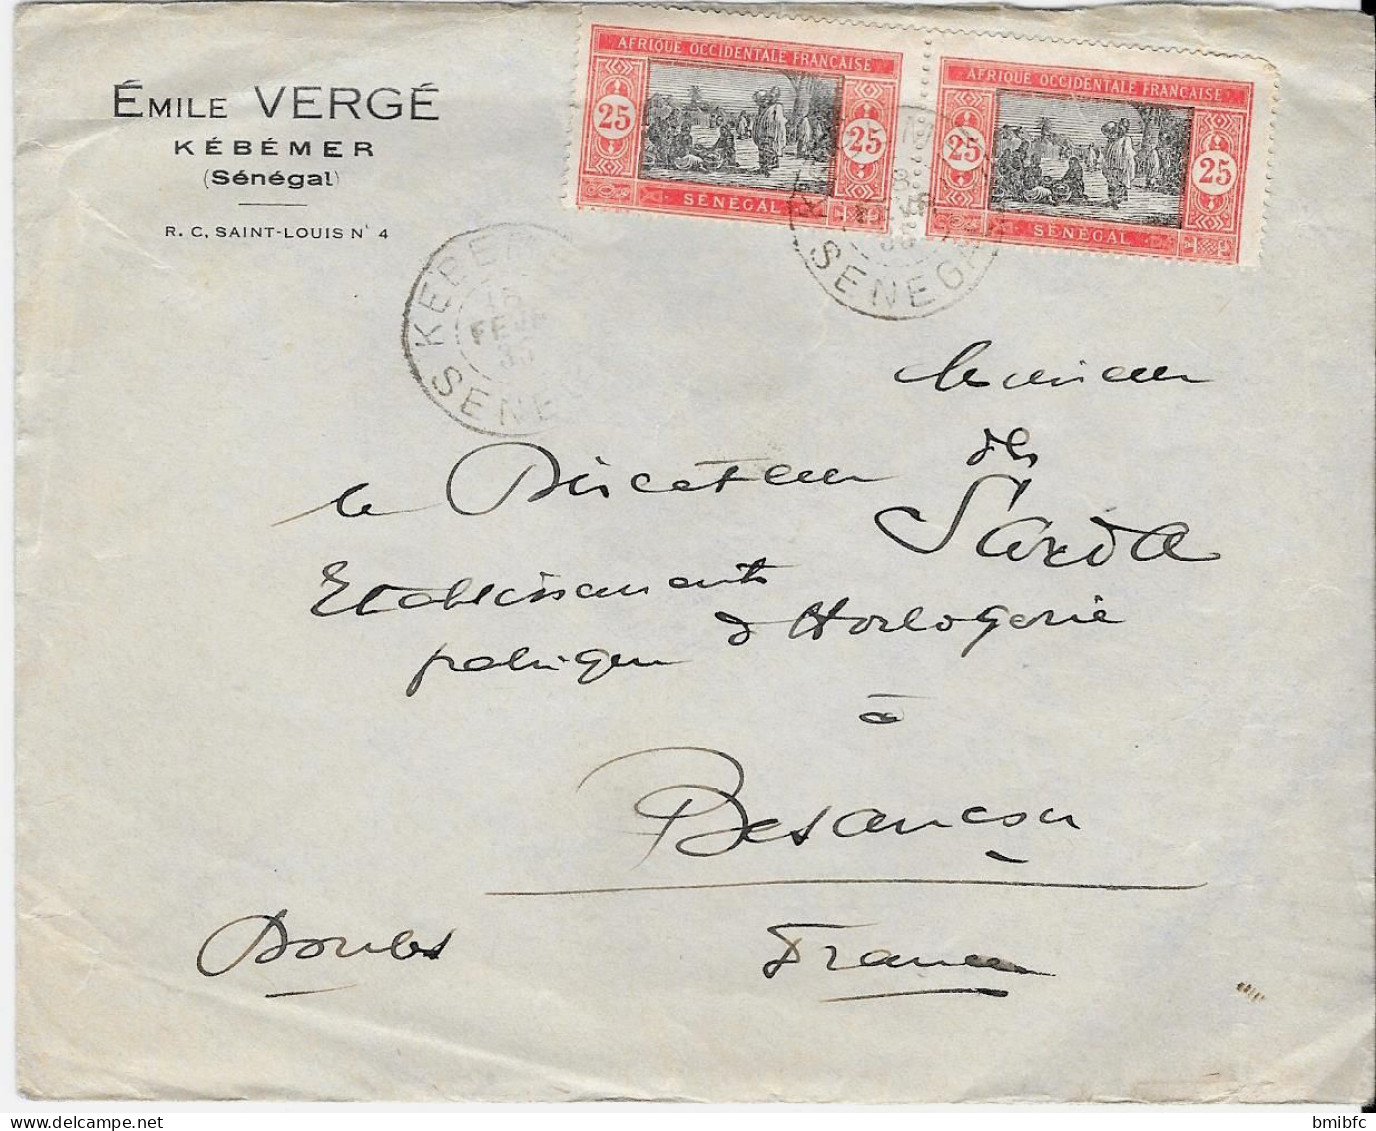 ÉMILE VERGÉ
KÉBÉMER
(Sénégal)
R. C. SAINT-LOUIS N° 4
AFRIQUE OCCIDENTALE FRANÇAISE
25 25
SÉNÉGAL
AFRIQUE OCCIDENTALE FRANÇAISE
25 25
SÉNÉGAL
SENEGAL
KEBEM
FEVR
SENEG
Monsieur
le Directeur des
Etablissements Sarda
fabrique d'Horlogerie
à
Besançon
Doubs France
bmibfc